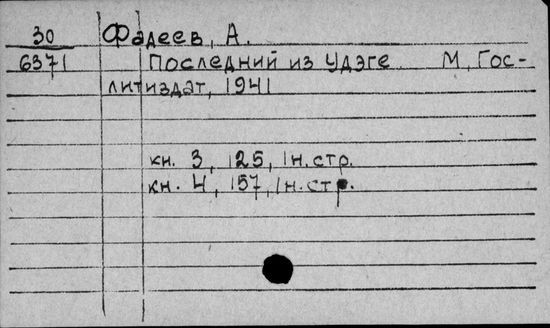 30 Фадеев, А.
6371 Последний из Удэге М, Гос-
литиздат, 1941
кн. 3, 125, 1н.стр.
кн. 4, 157, 1н.стр.